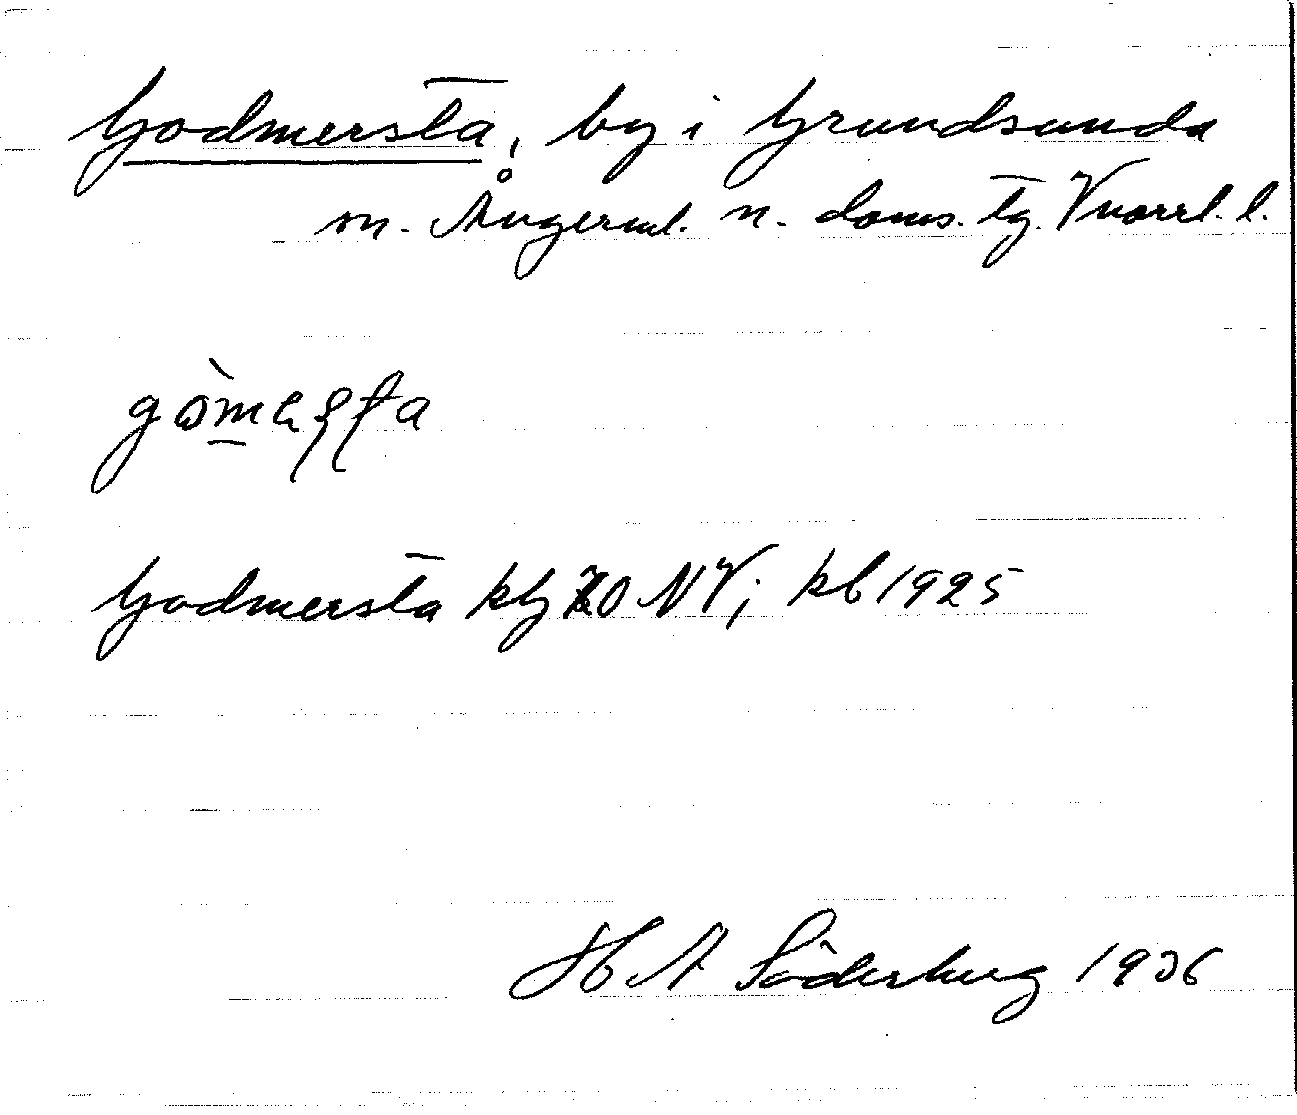 Godmersta, by i Grundsunda
sn. Ångerml. n. doms. tg. Vnorrl. l.
Godmersta kbg 70 NV; kb 1925
H A Söderberg 1936